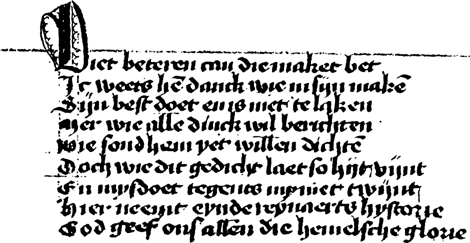 Diet beteren can die maket bet
Ic weets hē danck wie in sijn makē
Sijn best doet en is niet te laken
Mer wie alle dinck wil berichten
wie soud hem yet willen dichtē
Doch wie dit gedicht laet so hijt vijnt
En mysdoet tegents my niet twijnt
Hier neemt eynde reynaerts hystorie
God geef ons allen die hemelsche glorie